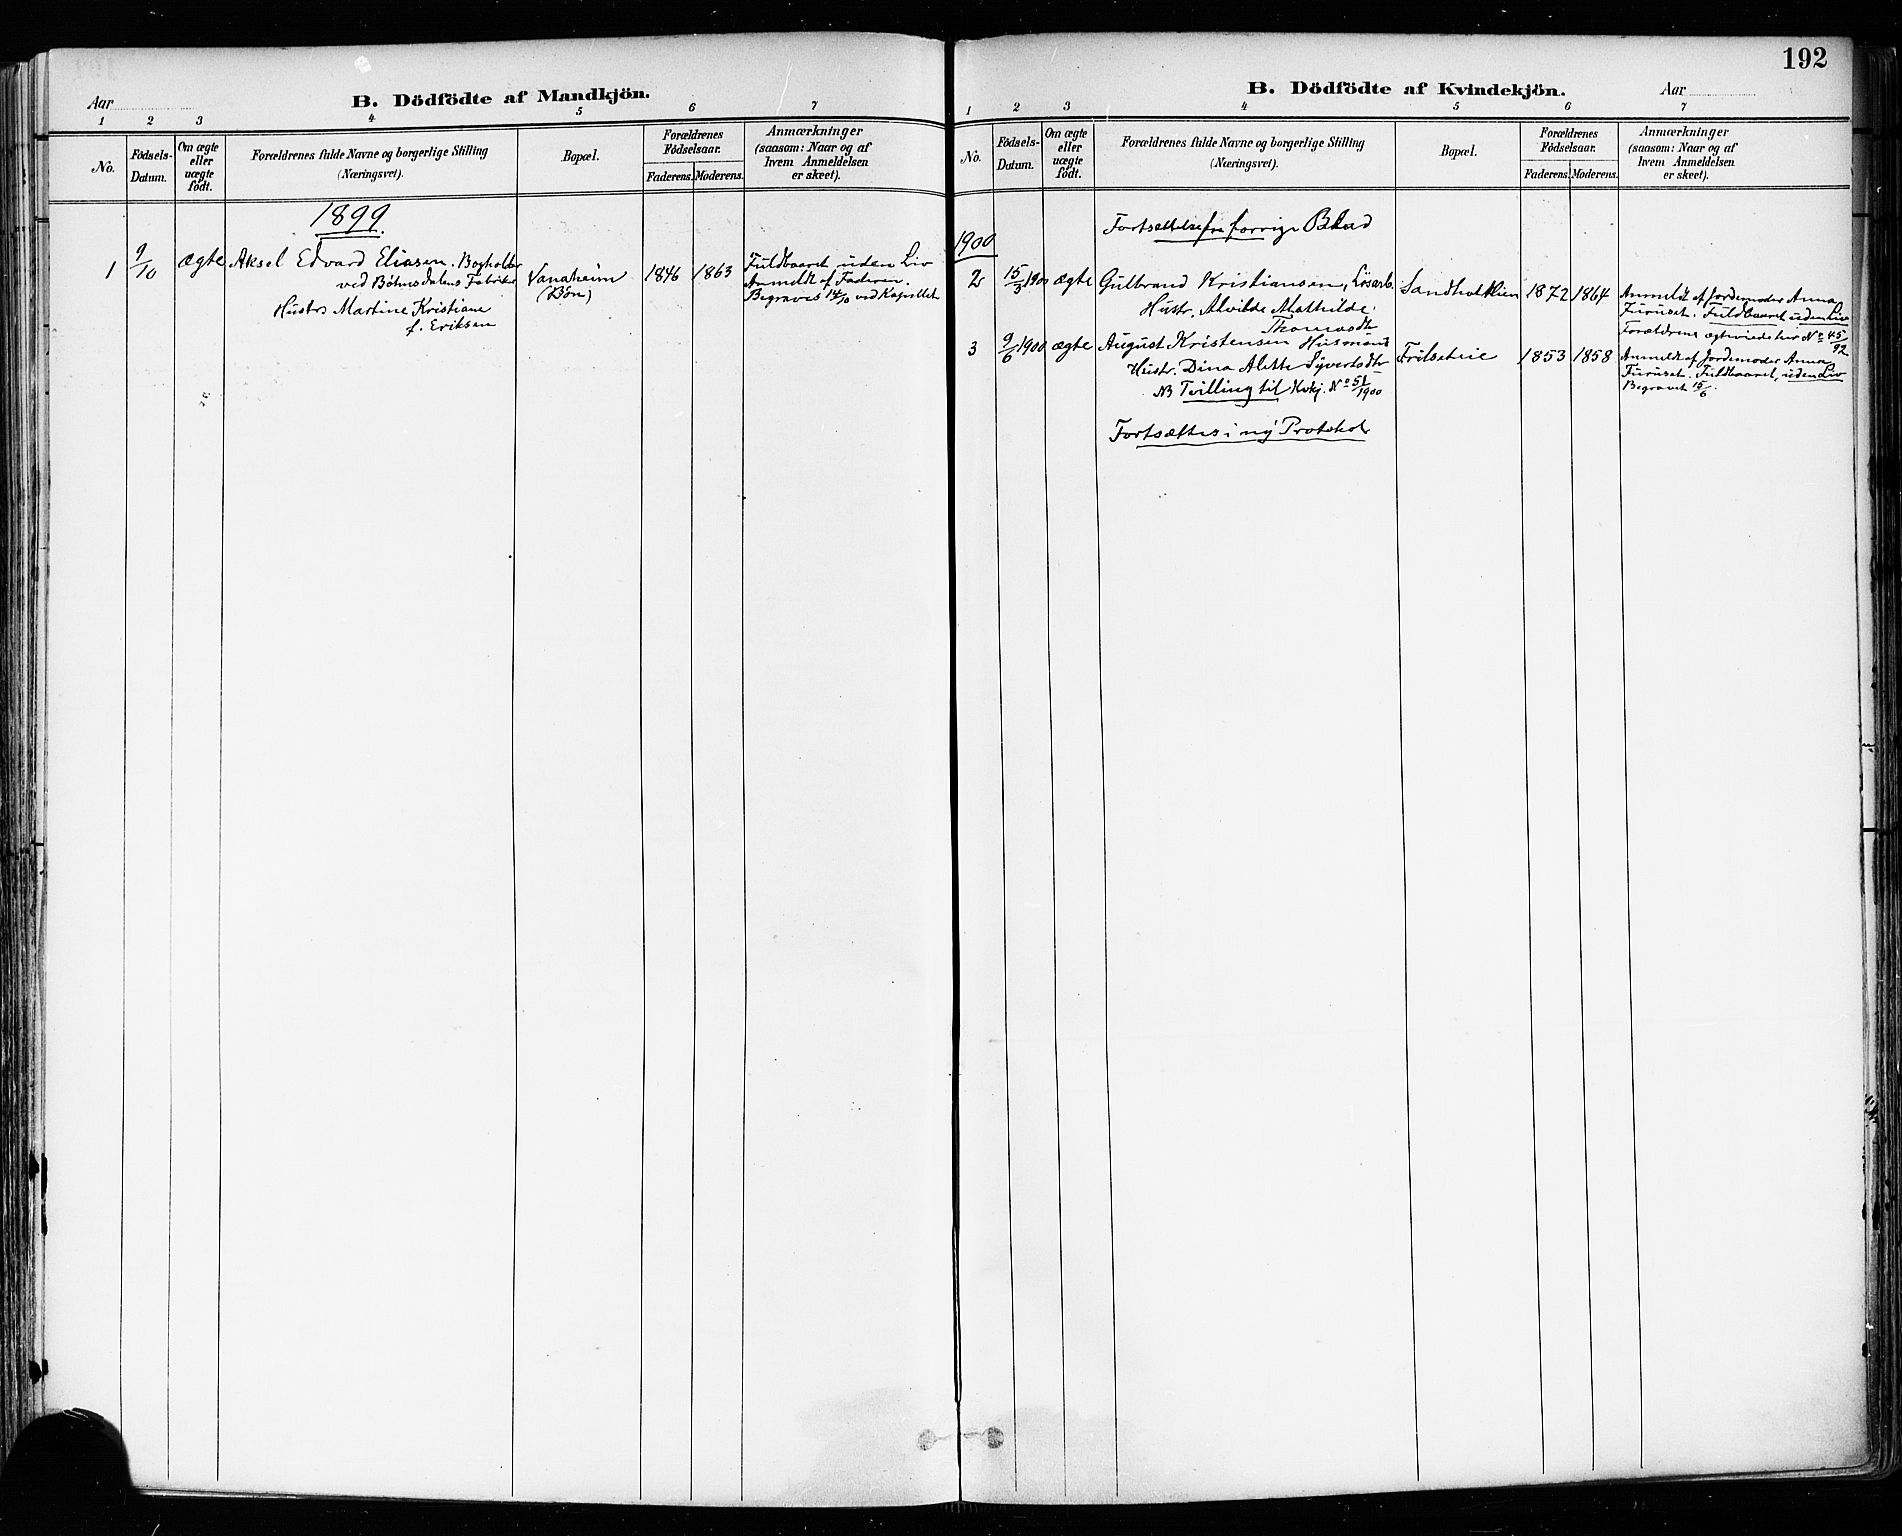 192
Aar
B. Dödfödte af Mandkjön.
1 2 3 4 5 6 7
No.
Födsels-
Datum.
Om ægte
eller
uægte
födt.
Forældrenes fulde Navne og borgerlige Stilling
(Næringsvei).
Bopæl.
Forældrenes
Födselsaar.
Faderens. Moderens.
Anmærkninger
(saasom: Naar og af
hvem Anmeldelsen
er skeet).
1899
1 9/10 ægte Aksel Edvard Eliasen. Bogholder
ved Böhnsdalens Fabriker
Hustro Martine Kristiane
f. Eriksen
Vanaheim
(Bön)
1846 1863
Fuldbaaret uden Liv
Anmeldt af Faderen.
Begraves 14/10 ved Kapellet
B. Dödfödte af Kvindekjön.
Aar
1 2 3 4 5 6 7
No.
Födsels-
Datum.
Om ægte
eller
uægte
födt.
Forældrenes fulde Navne og borgerlige Stilling
(Næringsvei).
Bopæl.
Forældrenes
Födselsaar.
Faderens. Moderens.
Anmærkninger
(saasom: Naar og af
hvem Anmeldelsen
er skeet).
Fortsættelse fra forrige Blad
1900
2 15/3 1900 ægte Gulbrand Kristiansen, Lösarb.
Hustr. Alvilde Mathilde
Thorvodtr
1872 1864
Anmeldt af Jordemoder Anna
Furuset. Fuldbaaret uden Liv
Forældrene ægteviede her No 45/92
3 9/6 1900 ægte August Kristensen Husmand
Hustr. Dina Alette Syvertsdtr
NB Tvilling til Kvkj. No 51/1900
Frilseteie
1853 1858
Anmeldt af Jordemoder Anna
Furuset. Fuldbaaret, uden Liv
Begravet 15/6.
Fortsættes i ny Protokol